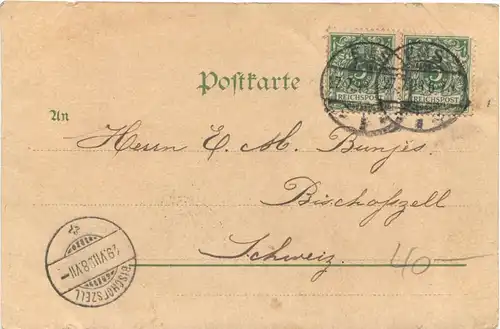 5 5
REICHSPOST REICHSPOST
Postkarte
An
Herrn E. M. Bunjes.
Bischofszell
Schweiz.
40-
29.VII.98.VII-
BISCHOFSZELL